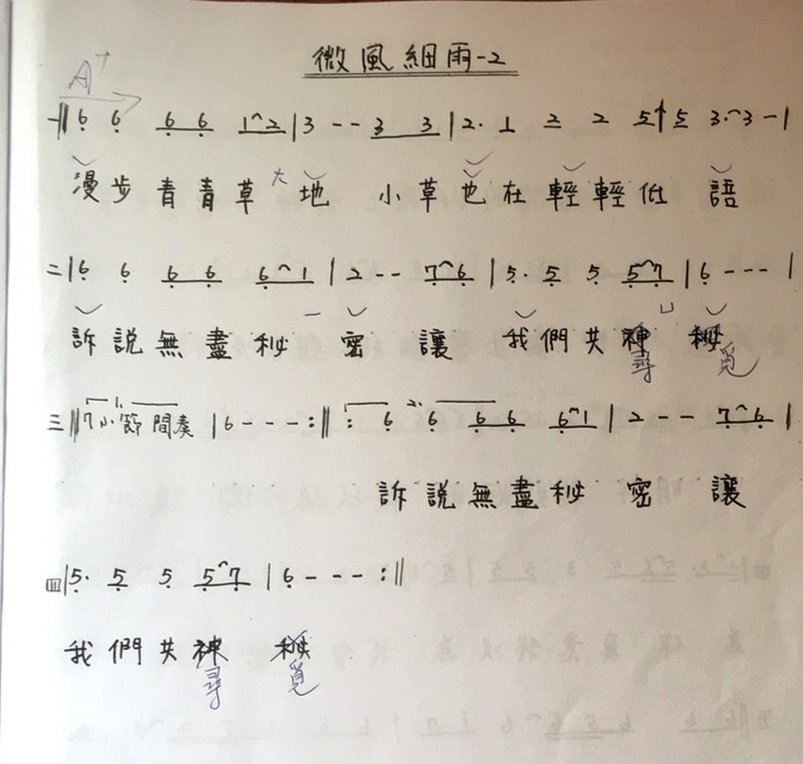 微風細雨-2
A+
一‖6 6 6 6 1⌒2 | 3 - - 3 3 | 2· 1 2 2 5↑5 3·⌒3 - |
漫步青青草大地 小草也在輕輕低語
二|6 6 6 6 6⌒1 | 2 - - 7⌒6 | 5· 5 5 5⌒7 | 6 - - - |
訴說無盡秘密讓 我們共神秘
尋覓
1. 2.
三‖7小節間奏 | 6 - - - :‖: 6 6 6 6 6⌒1 | 2 - - 7⌒6 |
訴說無盡秘密 讓
四|5· 5 5 5⌒7 | 6 - - - :‖
我們共神 秘
尋 覓